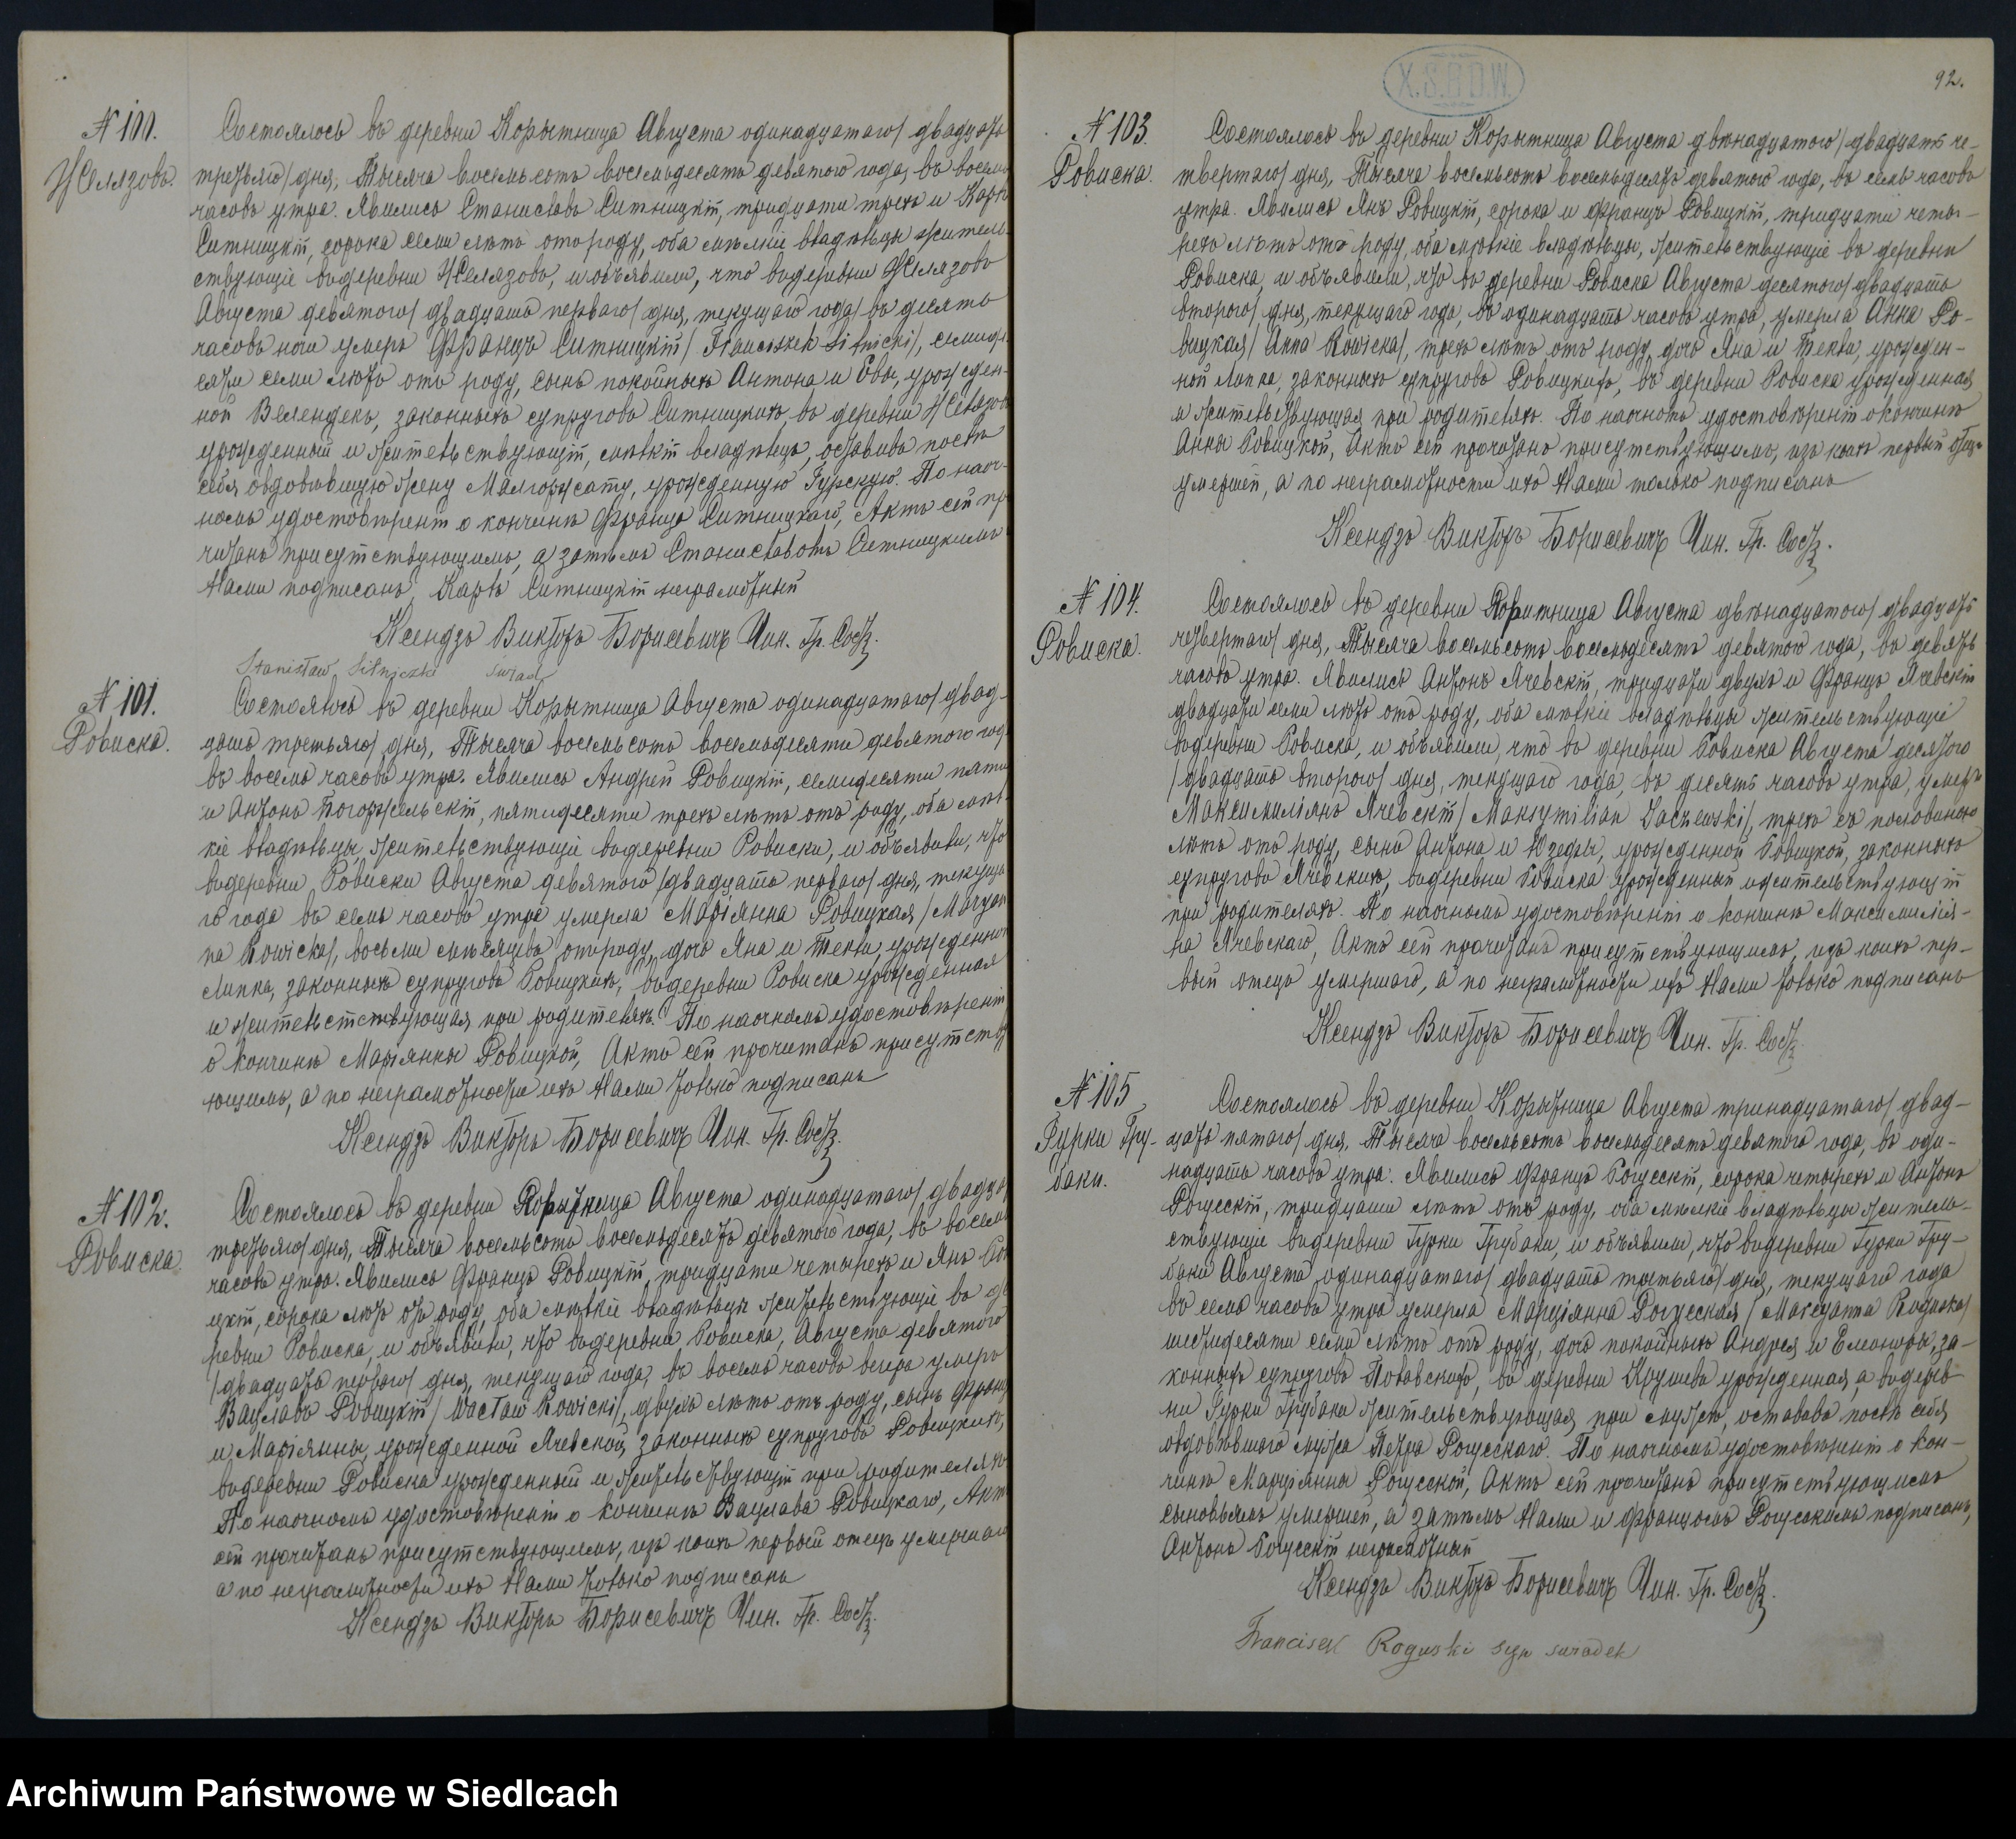 № 100.
Желязовъ.
Состоялось въ деревни Корытница Августа одинадцатаго/двадцать
третьяго/дня, Тысяча восемьсотъ восемьдесятъ девятого года, въ восемь
часовъ утра. Явились Станиславъ Ситницкій, тридцати трехъ и Карль
Ситницкій, сорока семи лѣтъ отъ роду, оба мѣлкіе владѣльцы житель-
ствующіе въ деревни Желязовъ, и объявили, что въ деревни Желязовъ
Августа девятого/двадцать перваго/дня, текущаго года, въ десять
часовъ ночи умеръ Францъ Ситницкій/Franciszek Sitnicki/, семиде-
сяти семи лѣтъ отъ роду, сынъ покойныхъ Антона и Евы, урожден-
ной Велендекъ, законныхъ супруговъ Ситницкихъ, въ деревни Желязовъ
урожденный и жительствующій, мѣлкій владѣлецъ, оставивъ послѣ
себя овдовѣвшую жену Малгоржату, урожденную Гурскую. По наоч-
номъ удостовѣреніи о кончинѣ Франца Ситницкаго, Актъ сей про-
читанъ присутствующимъ, а затѣмъ Станиславомъ Ситницкимъ
Нами подписанъ, Карль Ситницкій неграмотный
Ксендзъ Викторъ Борисевичъ Чин. Гр. Сост.
Stanisław Sitniczki swiadk
№ 101.
Ровиска.
Состоялось въ деревни Корытница Августа одинадцатаго/двад-
цать третьяго/дня, Тысяча восемьсотъ восемьдесяти девятого года
въ восемь часовъ утра. Явились Андрей Ровицкій, семидесяти пяти
и Антонъ Погоржельскій, пятидесяти трехъ лѣтъ отъ роду, оба мѣл-
кіе владѣльцы, жительствующіе въ деревни Ровиски, и объявили, что
въ деревни Ровиски Августа девятого/двадцать перваго/дня, текуща-
го года въ семь часовъ утра умерла Маріянна Ровицкая/Maryan-
na Rowicka/, восьми мѣсяцевъ отъ роду, дочь Яна и Теклы, урожденной
Липка, законныхъ супруговъ Ровицкихъ, въ деревни Ровиска урожденная
и жительствующая при родителяхъ. По наочномъ удостовѣреніи
о кончинѣ Маріянны Ровицкой, Актъ сей прочитанъ присутству-
ющимъ, а по неграмотности ихъ Нами только подписанъ
Ксендзъ Викторъ Борисевичъ Чин. Гр. Сост.
№ 102.
Ровиска.
Состоялось въ деревни Корытница Августа одинадцатаго/двадцать
третьяго/дня, Тысяча восемьсотъ восемьдесятъ девятого года, въ восемь
часовъ утра. Явились Францъ Ровицкій, тридцати четырехъ и Янъ Рови-
цкій, сорока лѣтъ отъ роду, оба мѣлкіе владѣльцы жительствующіе въ де-
ревни Ровиска, и объявили, что въ деревни Ровиска, Августа девятого
/двадцать перваго/дня, текущаго года, въ восемь часовъ вечера умеръ
Вацлавъ Ровицкій/Wacław Rowicki/, двухъ лѣтъ отъ роду, сынъ Франца
и Маріянны, урожденной Ячевской, законныхъ супруговъ Ровицкихъ,
въ деревни Ровиска урожденный и жительствующій при родителяхъ.
По наочномъ удостовѣреніи о кончинѣ Вацлава Ровицкаго, Актъ
сей прочитанъ присутствующимъ, изъ коихъ первый отецъ умершаго
а по неграмотности ихъ Нами только подписанъ
Ксендзъ Викторъ Борисевичъ Чин. Гр. Сост.
X.S.B.D.W.
92.
№ 103
Ровиска.
Состоялось въ деревни Корытница Августа двѣнадцатого/двадцать че-
твертаго/дня, Тысяча восемьсотъ восемьдесятъ девятого года, въ семь часовъ
утра. Явились Янъ Ровицкій, сорока и Францъ Ровицкій, тридцати четы-
рехъ лѣтъ отъ роду, оба мѣлкіе владѣльцы, жительствующіе въ деревни
Ровиска, и объявили, что въ деревни Ровиска Августа десятого/двадцать
второго/дня, текущаго года, въ одинадцать часовъ утра, умерла Анна Ро-
вицкая/Anna Rowicka/, трехъ лѣтъ отъ роду, дочь Яна и Теклы, урожден-
ной Липка, законныхъ супруговъ Ровицкихъ, въ деревни Ровиска урожденная
и жительствующая при родителяхъ. По наочномъ удостовѣреніи о кончинѣ
Анны Ровицкой, Актъ сей прочитанъ присутствующимъ, изъ коихъ первый отецъ
умершей, а по неграмотности ихъ Нами только подписанъ
Ксендзъ Викторъ Борисевичъ Чин. Гр. Сост.
№ 104.
Ровиска.
Состоялось въ деревни Коритница Августа двѣнадцатого/двадцать
четвертаго/дня, Тысяча восемьсотъ восемьдесятъ девятого года, въ девять
часовъ утра. Явились Антонъ Ячевскій, тридцати двухъ и Францъ Ячевскій
двадцати семи лѣтъ отъ роду, оба мѣлкіе владѣльцы жительствующіе
въ деревни Ровиска, и объявили, что въ деревни Ровиска Августа десятого
/двадцать второго/дня, текущаго года, въ десять часовъ утра, умеръ
Максимиліянъ Ячевскій/Maksymilian Jaczewski/, трехъ съ половиною
лѣтъ отъ роду, сынъ Антона и Юзефы, урожденной Ровицкой, законныхъ
супруговъ Ячевскихъ, въ деревни Ровиска урожденный и жительствующій
при родителяхъ. По наочномъ удостовѣреніи о кончинѣ Максимилія-
на Ячевскаго, Актъ сей прочитанъ присутствующимъ, изъ коихъ пер-
вый отецъ умершаго, а по неграмотности ихъ Нами только подписанъ
Ксендзъ Викторъ Борисевичъ Чин. Гр. Сост.
№ 105
Гурки Гру-
баки.
Состоялось въ деревни Корытница Августа тринадцатаго/двад-
цать пятаго/дня, Тысяча восемьсотъ восемьдесятъ девятого года, въ оди-
надцать часовъ утра. Явились Францъ Рогусскій, сорока четырехъ и Антонъ
Рогусскій, тридцати лѣтъ отъ роду, оба мѣлкіе владѣльцы житель-
ствующіе въ деревни Гурки Грубаки, и объявили, что въ деревни Гурки Гру-
баки Августа одинадцатаго/двадцать третьяго/дня, текущаго года
въ семь часовъ утра умерла Марціянна Рогусская/Marcyanna Roguska/
шестидесяти семи лѣтъ отъ роду, дочь покойныхъ Андрея и Елеоноры, за-
конныхъ супруговъ Повавскихъ, въ деревни Крушева урожденная, а въ дерев-
ни Гурки Грубаки жительствующая при мужѣ, оставивъ послѣ себя
овдовѣвшаго мужа Петра Рогусскаго. По наочномъ удостовѣреніи о кон-
чинѣ Марціянны Рогусской, Актъ сей прочитанъ присутствующимъ
сыновьямъ умершей, а затѣмъ Нами и Францомъ Рогусскимъ подписанъ,
Антонъ Рогусскій неграмотный
Ксендзъ Викторъ Борисевичъ Чин. Гр. Сост.
Francisek Roguski syn swiadek
Archiwum Państwowe w Siedlcach